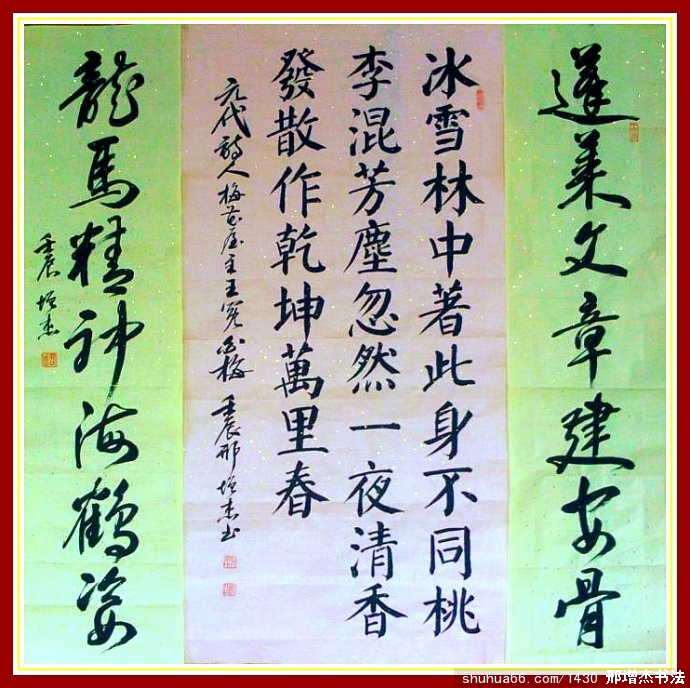 蓬莱文章建安骨
冰雪林中著此身不同桃
李混芳塵忽然一夜清香
發散作乾坤萬里春
元代詩人梅花屋主王冕白梅 壬辰邢增杰书
龍馬精神海鶴姿
壬辰 增杰
shuhua66.com/1430 邢增杰书法